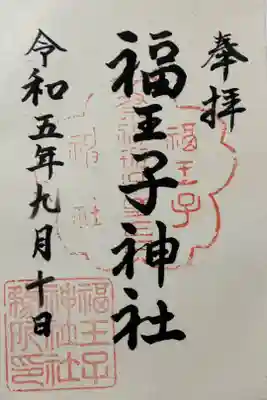 奉拝
福王子神社
令和五年九月十日
福王子
神社
福王子
神社社
務所印